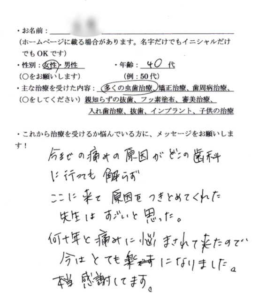 ・お名前:
(ホームページに載る場合があります。名字だけでもイニシャルだけ
でもOKです)
・性別:女性・男性 ・年齢:40代
(○をお願いします) (例:50代)
・主な治療を受けた内容:多くの虫歯治療、矯正治療、歯周病治療、
(○をしてください)親知らずの抜歯、フッ素塗布、審美治療、
入れ歯治療、抜歯、インプラント、子供の治療
・これから治療を受けるか悩んでいる方に、メッセージをお願いしま
す!
今までの痛みの原因がどこの歯科
に行っても解らず
ここに来て原因をつきとめてくれた
先生はすごいと思った。
何十年と痛みに悩まされて来たので
今はとても楽になりました。
本当感謝してます。